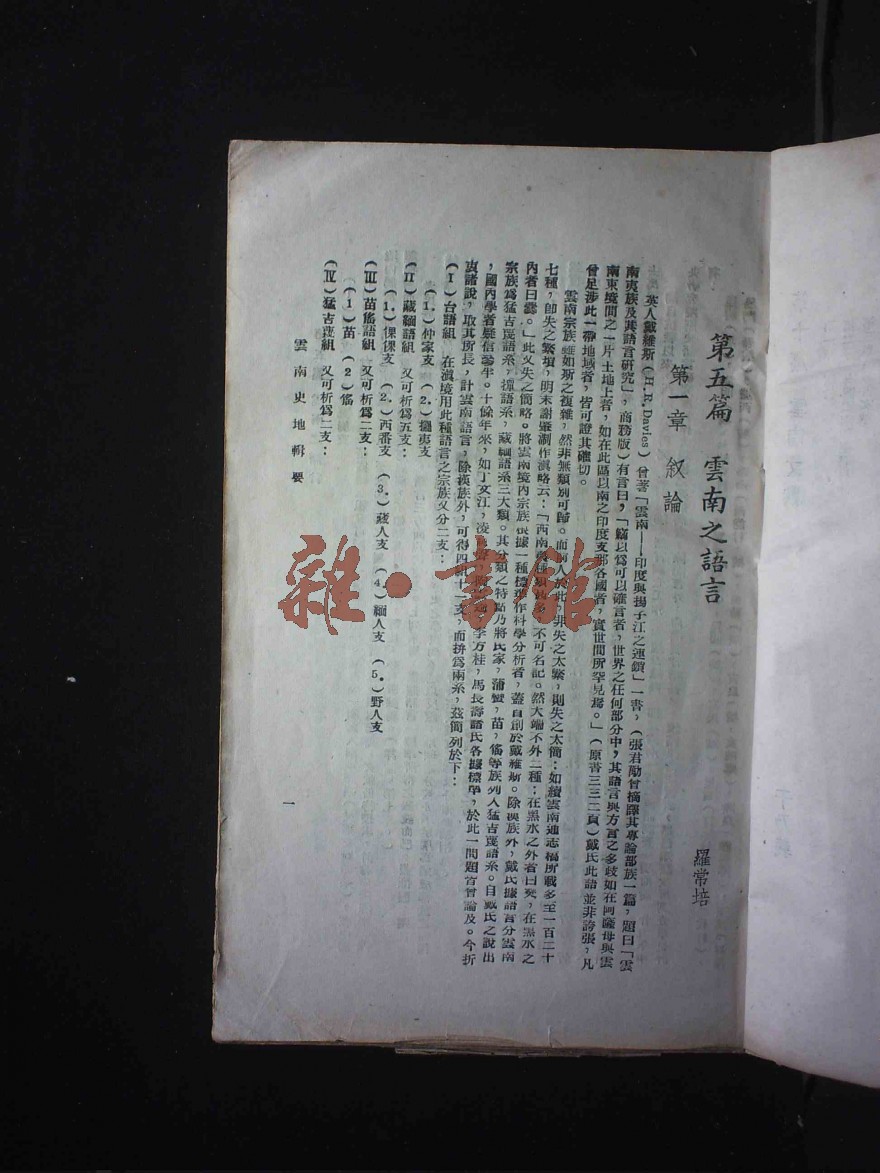 第五篇　雲南之語言
羅常培
第一章　叙論
英人戴維斯(H.R.Davies)曾著「雲南——印度與揚子江之連鎖」一書，(張君勱曾摘譯其專論部族一篇，題曰「雲
南夷族及其語言研究」，商務版)有言曰，「竊以爲可以確言者，世界之任何部分中，其語言與方言之多歧如在阿薩母與雲
南東境間之一片土地上者，如在此區以南之印度支那各國者，實世間所罕見焉。」(原書三三二頁)戴氏此語並非誇張，凡
曾足涉此一帶地域者，皆可證其確切。
雲南宗族雖如斯之複雜，然非無類別可歸。而前人於此，非失之太繁，則失之太簡：如續雲南通志稿所載多至一百二十
七種，卽失之繁瑣，明末謝肇淛作滇略云：「西南夷種類至多，不可名記。然大端不外二種：在黑水之外者曰僰，在黑水之
內者曰爨。」此又失之簡略。將雲南境內宗族根據一種標準作科學分析者，蓋自創於戴維斯。除漢族外，戴氏據語言分雲南
宗族爲猛吉蔑語系，撣語系，藏緬語系三大類。其分類之特點乃將民家，蒲蠻，苗，傜等族列入猛吉蔑語系。自戴氏之說出
，國內學者疑信參半。十餘年來，如丁文江，凌李方桂，馬長壽諸氏各據標準，於此一問題皆曾論及。今折
衷諸說，取其所長，計雲南語言，除漢族外，可得四組十一支，而拼爲兩系，茲簡列於下：
(Ⅰ)台語組　在滇境用此種語言之宗族又分二支：
(1.)仲家支　(2.)擺夷支
(Ⅱ)藏緬語組　又可析爲五支：
(1.)倮倮支　(2.)西番支　(3.)藏人支　(4.)緬人支　(5.)野人支
(Ⅲ)苗傜語組　又可析爲二支：
(1)苗　(2)傜
(Ⅳ)猛吉蔑組　又可析爲二支：
雲南史地輯要
一
雜·書館